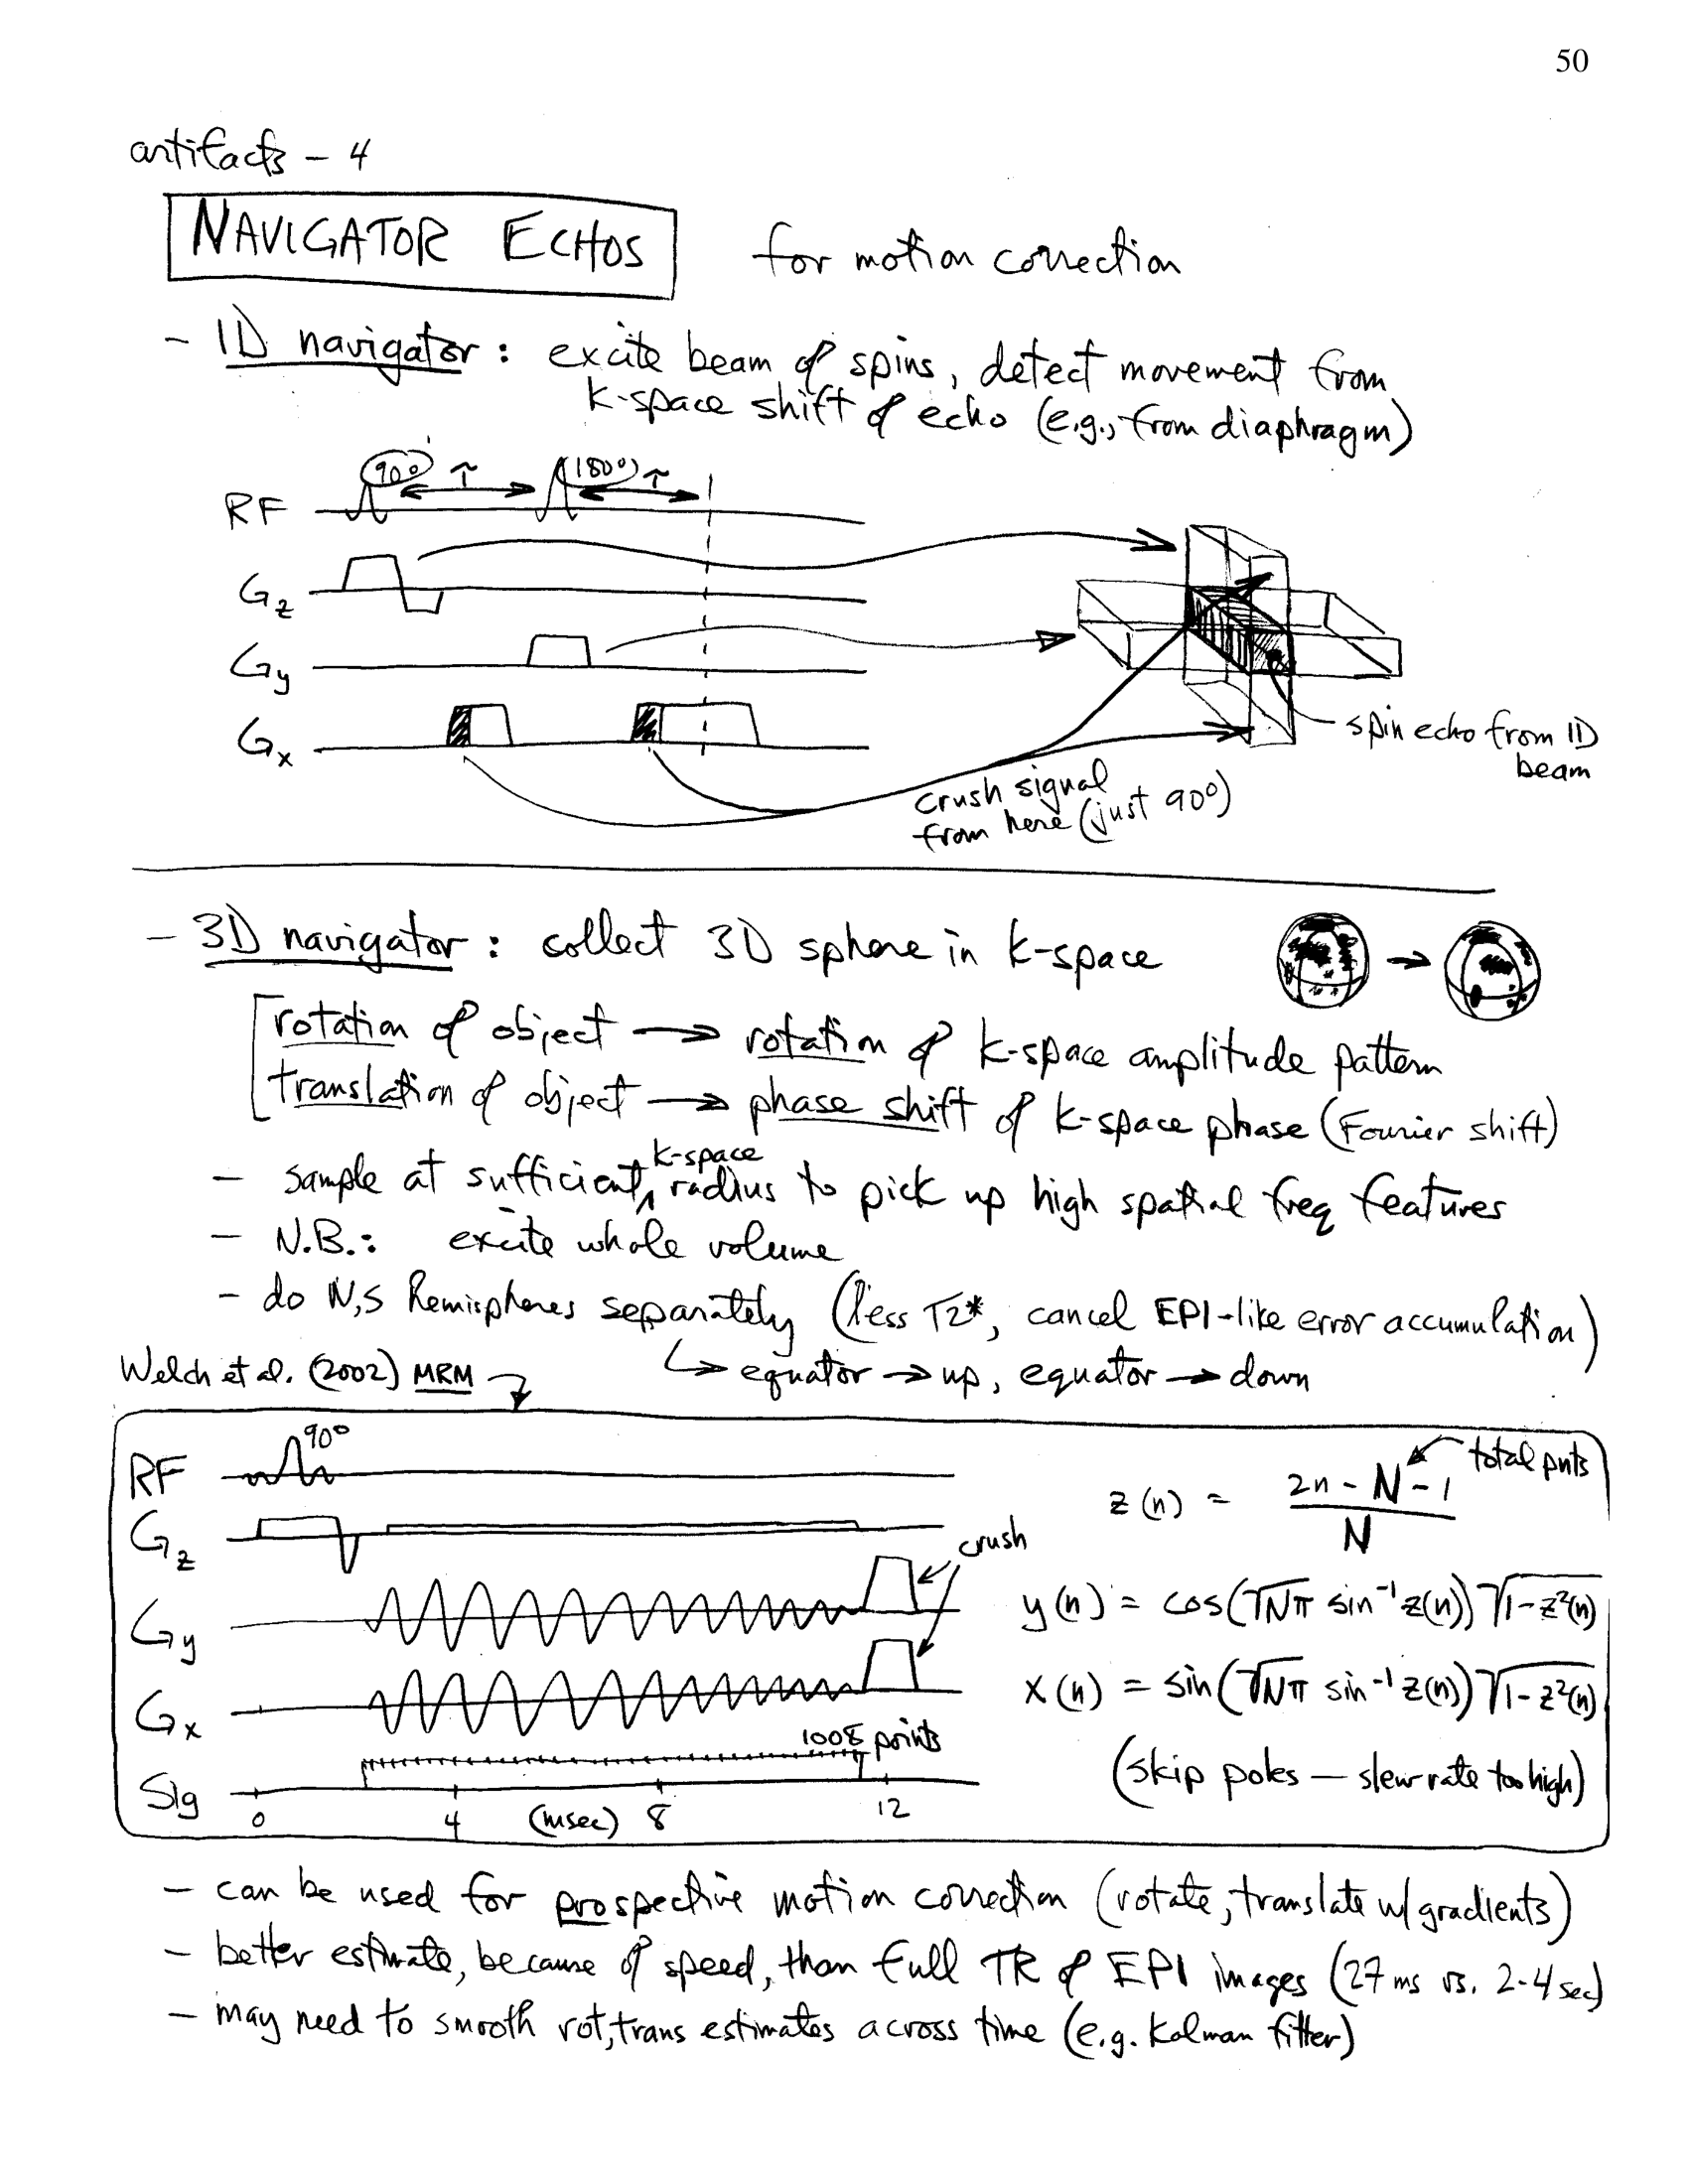 50
artifacts - 4
NAVIGATOR ECHOS
for motion correction
- 1D navigator: excite beam of spins, detect movement from
k-space shift of echo (e.g., from diaphragm)
90° τ 180° τ
RF
Gz
Gy
Gx
spin echo from 1D
beam
crush signal
from here (just 90°)
- 3D navigator: collect 3D sphere in k-space
rotation of object → rotation of k-space amplitude pattern
translation of object → phase shift of k-space phase (Fourier shift)
- sample at sufficient k-space radius to pick up high spatial freq features
- N.B.: excite whole volume
- do N,S hemispheres separately (less T2*, cancel EPI-like error accumulation)
↳ equator → up, equator → down
Welch et al. (2002) MRM
RF 90°
Gz
crush
Gy
Gx
1008 points
Sig
0 4 (msec) 8 12
total pnts
z(n) = (2n - N - 1) / N
y(n) = cos(√Nπ sin⁻¹ z(n)) √1-z²(n)
x(n) = sin(√Nπ sin⁻¹ z(n)) √1-z²(n)
(skip poles — slew rate too high)
- can be used for prospective motion correction (rotate, translate w/ gradients)
- better estimate, because of speed, than full TR of EPI images (27 ms vs. 2-4 sec)
- may need to smooth rot, trans estimates across time (e.g. Kalman filter)